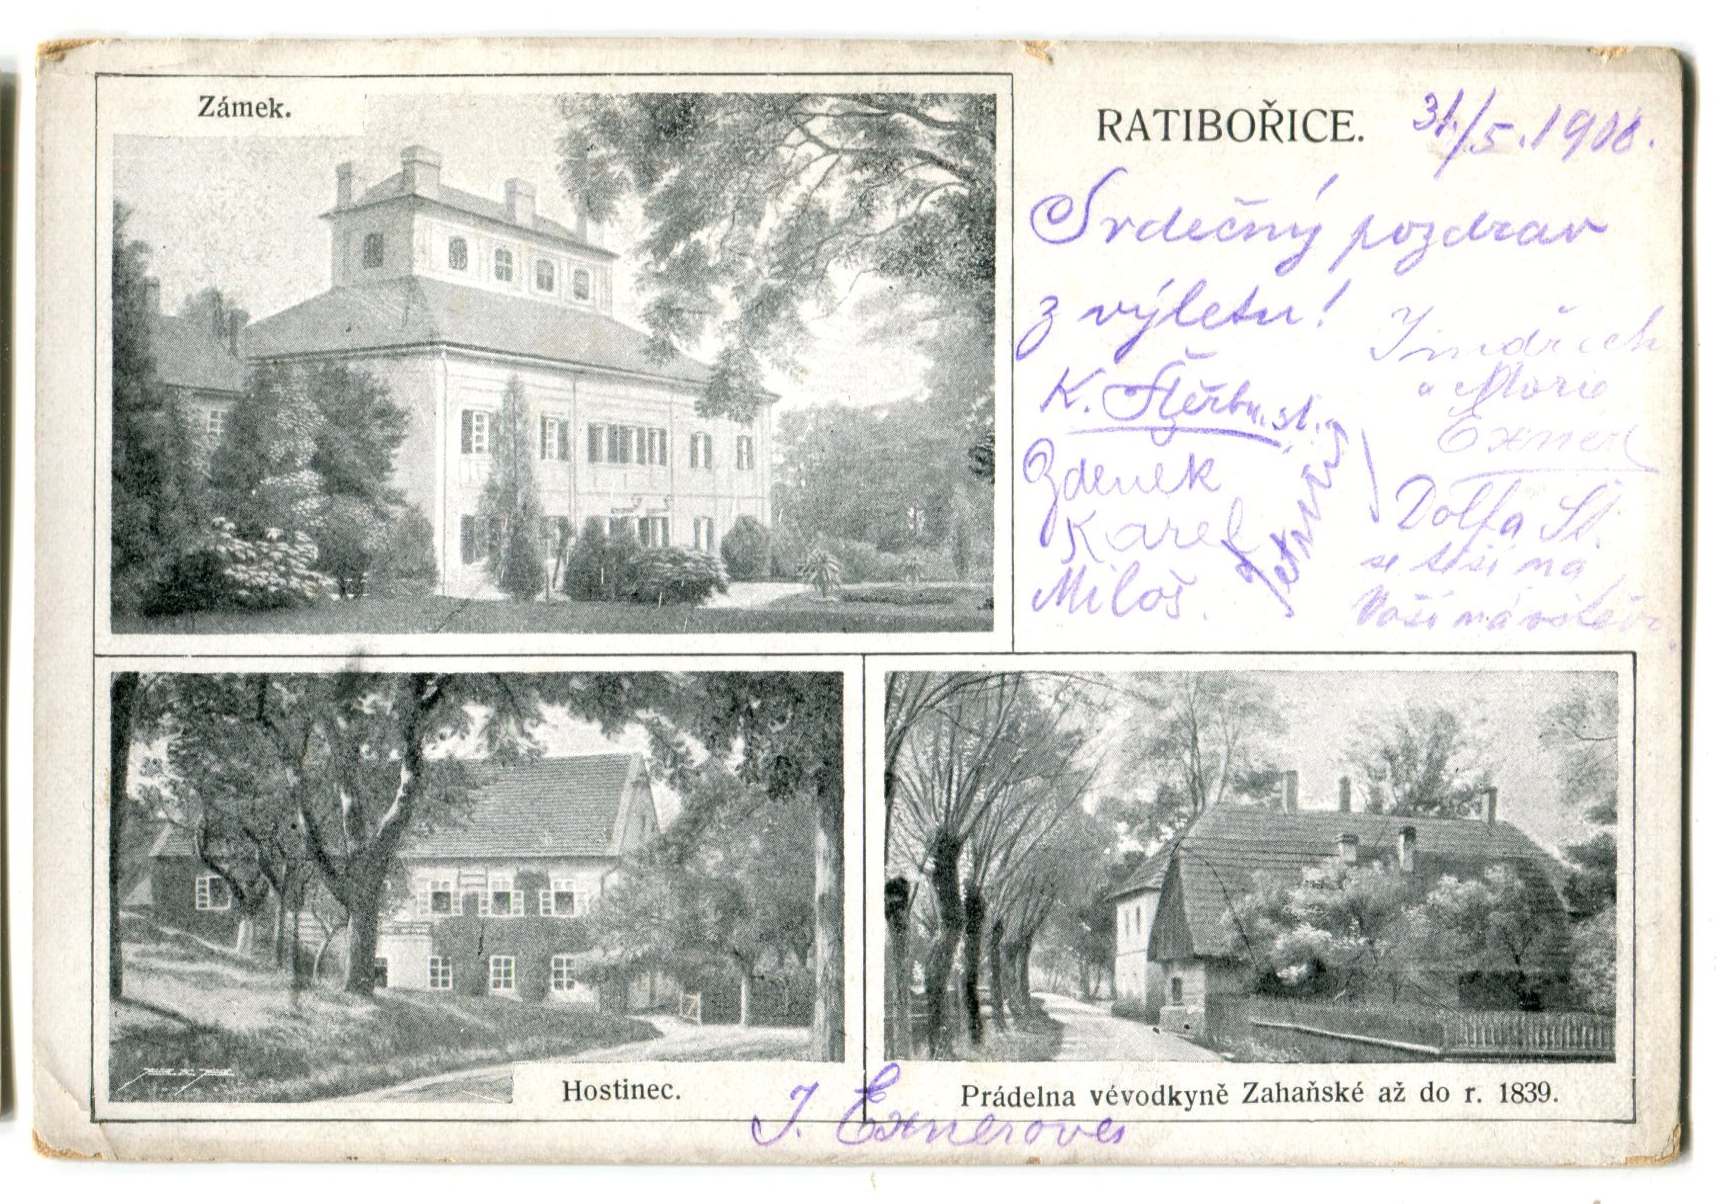 Zámek.
RATIBOŘICE.
31./5. 1908.
Srdečný pozdrav
z výletu!
K. Štěrba st.
Zdenek
Karel
Miloš.
Jindřich
a Marie
Exner
Dolfa Št.
se těší na
Vaši návštěvu.
Hostinec.
Prádelna vévodkyně Zahaňské až do r. 1839.
J. Exnerová